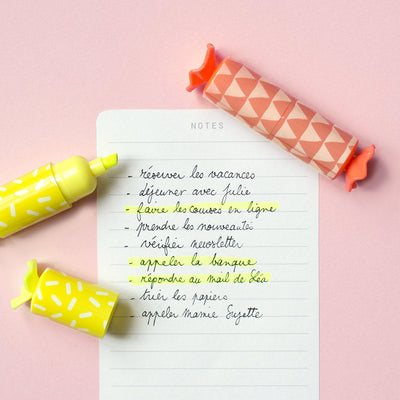 NOTES
- réserver les vacances
- déjeuner avec Julie
- faire les courses en ligne
- prendre les nouveautés
- vérifier newsletter
- appeler la banque
- répondre au mail de Léa
- trier les papiers
- appeler Mamie Suzette